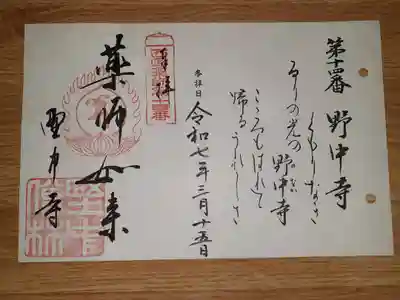 第十四番 野中寺
くもりなき
るりの光の野中寺
こゝろもはれて
帰るうれしさ
参拝日 令和七年三月十五日
奉拝
薬師如来
野中寺